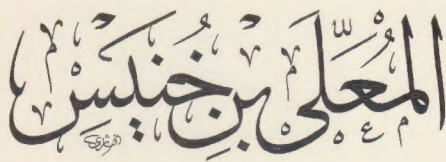 المُعَلّى بنِ خُنَيسْ